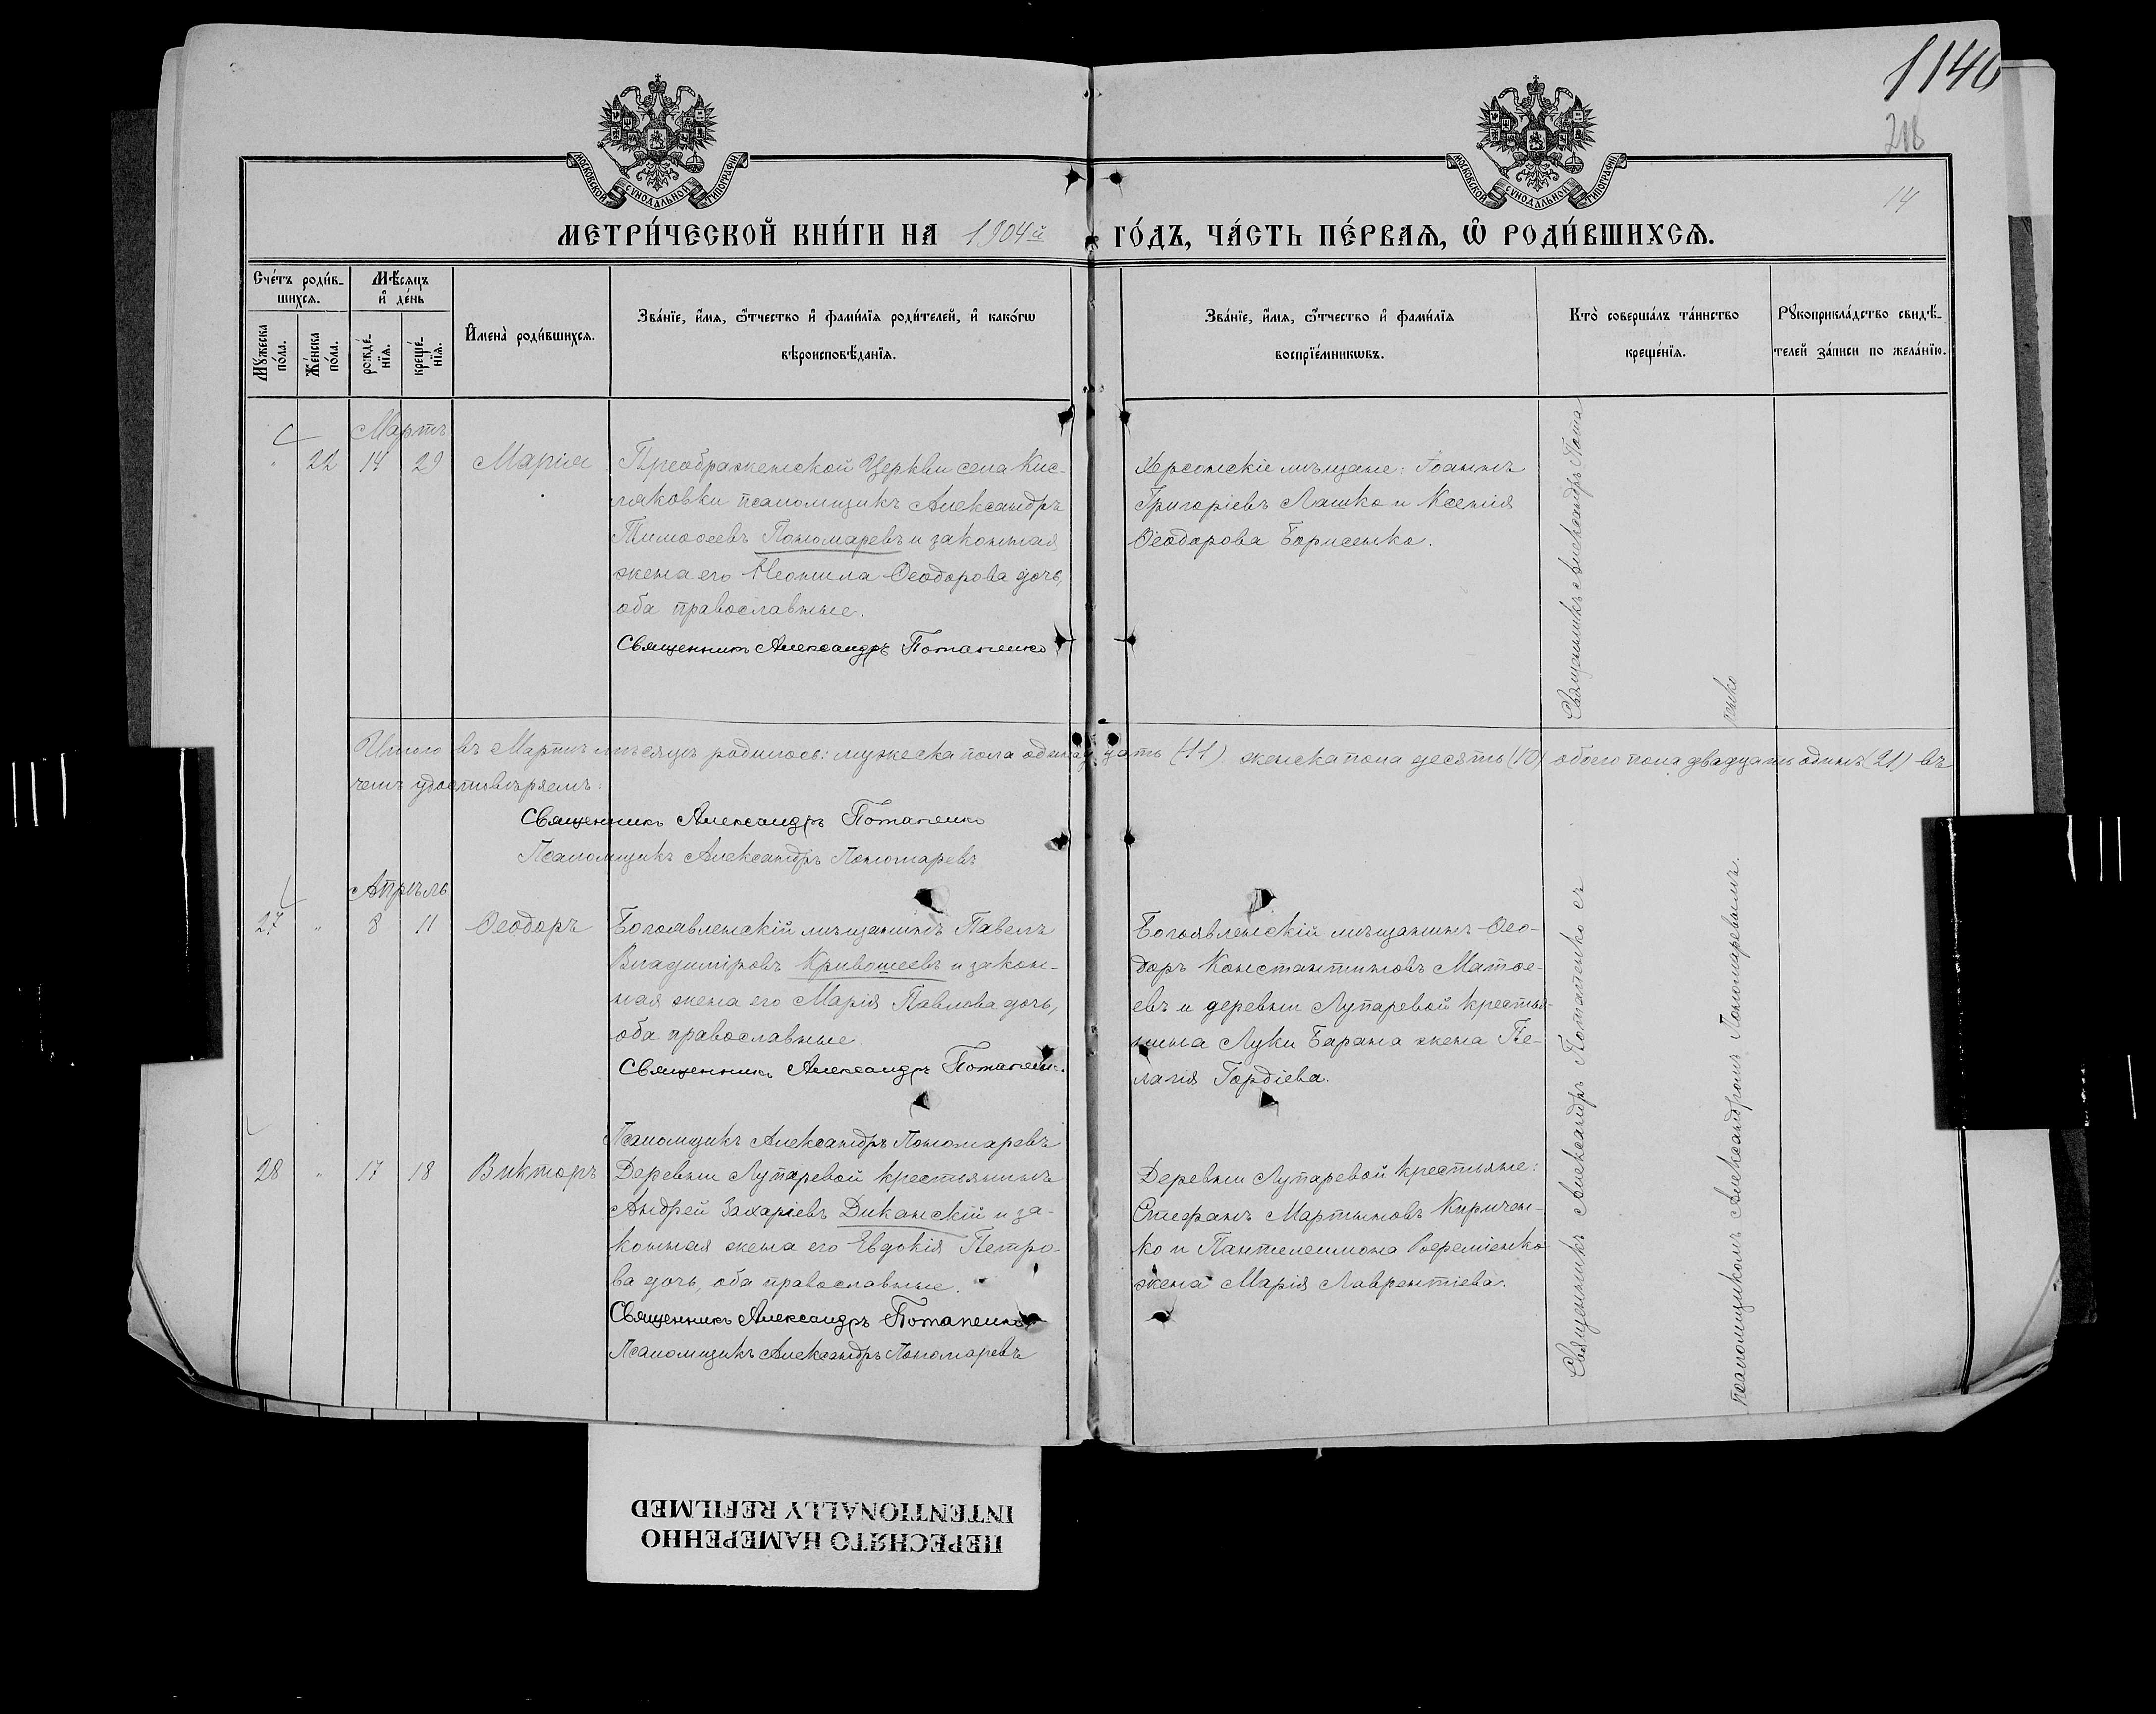 1140
218
14
МОСКОВСКОЙ СѴНОДАЛЬНОЙ ТИПОГРАФІИ
МОСКОВСКОЙ СѴНОДАЛЬНОЙ ТИПОГРАФІИ
МЕТРИ́ЧЕСКОЙ КНИ́ГИ НА 1904й ГО́ДЪ, ЧА́СТЬ ПЕ́РВАѦ, Ѡ҆ РОДИ́ВШИХСѦ.
Сче́тъ роди́в-
шихсѧ.
Мꙋ́жеска по́ла.
Же́нска по́ла.
Мѣ́сѧцъ и҆ де́нь
рожде́-нїѧ.
креще́-нїѧ.
И҆мена̀ роди́вшихсѧ.
Зва́нїе, и҆́мѧ, ѻ҆́тчество и҆ фами́лїѧ роди́телей, и҆ како́гѡ
вѣроисповѣ́данїѧ.
Зва́нїе, и҆́мѧ, ѻ҆́тчество и҆ фами́лїѧ
воспрїе́мникѡвъ.
Кто̀ соверша́лъ та́инство
креще́нїѧ.
Рꙋкоприкла́дство свидѣ́-
телей за́писи по жела́нїю.
Мартъ
" 22 14 29 Марія
Преображенской Церкви села Кис-
ляковки псаломщикъ Александръ
Тимоѳеевъ Пономаревъ и законная
жена его Неонила Ѳеодорова дочь,
оба православные.
Священникъ Александръ Потапенко
Херсонскіе мѣщане: Іоаннъ
Григоріевъ Ляшко и Ксенія
Ѳеодорова Борисенко.
Священникъ Александръ Пота
пенко
Итого въ Мартѣ мѣсяцѣ родилось: мужеска пола одинадцать (11) женска пола десять (10) обоего пола двадцать одинъ (21) въ
чемъ удостовѣряемъ:
Священникъ Александръ Потапенко
Псаломщикъ Александръ Пономаревъ
Апрѣль
27 " 8 11 Ѳеодоръ
Богоявленскій мѣщанинъ Павелъ
Владиміровъ Кривошеевъ и закон-
ная жена его Марія Павлова дочь,
оба православные.
Священникъ Александръ Потапенко
Псаломщикъ Александръ Пономаревъ
Богоявленскій мѣщанинъ Ѳео-
доръ Константиновъ Матѳе-
евъ и деревни Лупаревой крестья-
нина Луки Барана жена Пе-
лагія Гордіева.
28 " 17 18 Викторъ
Деревни Лупаревой крестьянинъ
Андрей Захаріевъ Диканскій и за-
конная жена его Евдокія Петро-
ва дочь, оба православные.
Священникъ Александръ Потапенко
Псаломщикъ Александръ Пономаревъ
Деревни Лупаревой крестьяне:
Стефанъ Мартыновъ Киричен-
ко и Пантелеимона
жена Марія Лаврентіева.
Священникъ Александръ Потапенко съ
псаломщикомъ Александромъ Пономаревымъ.
ПЕРЕСНЯТО НАМЕРЕННО
INTENTIONALLY REFILMED